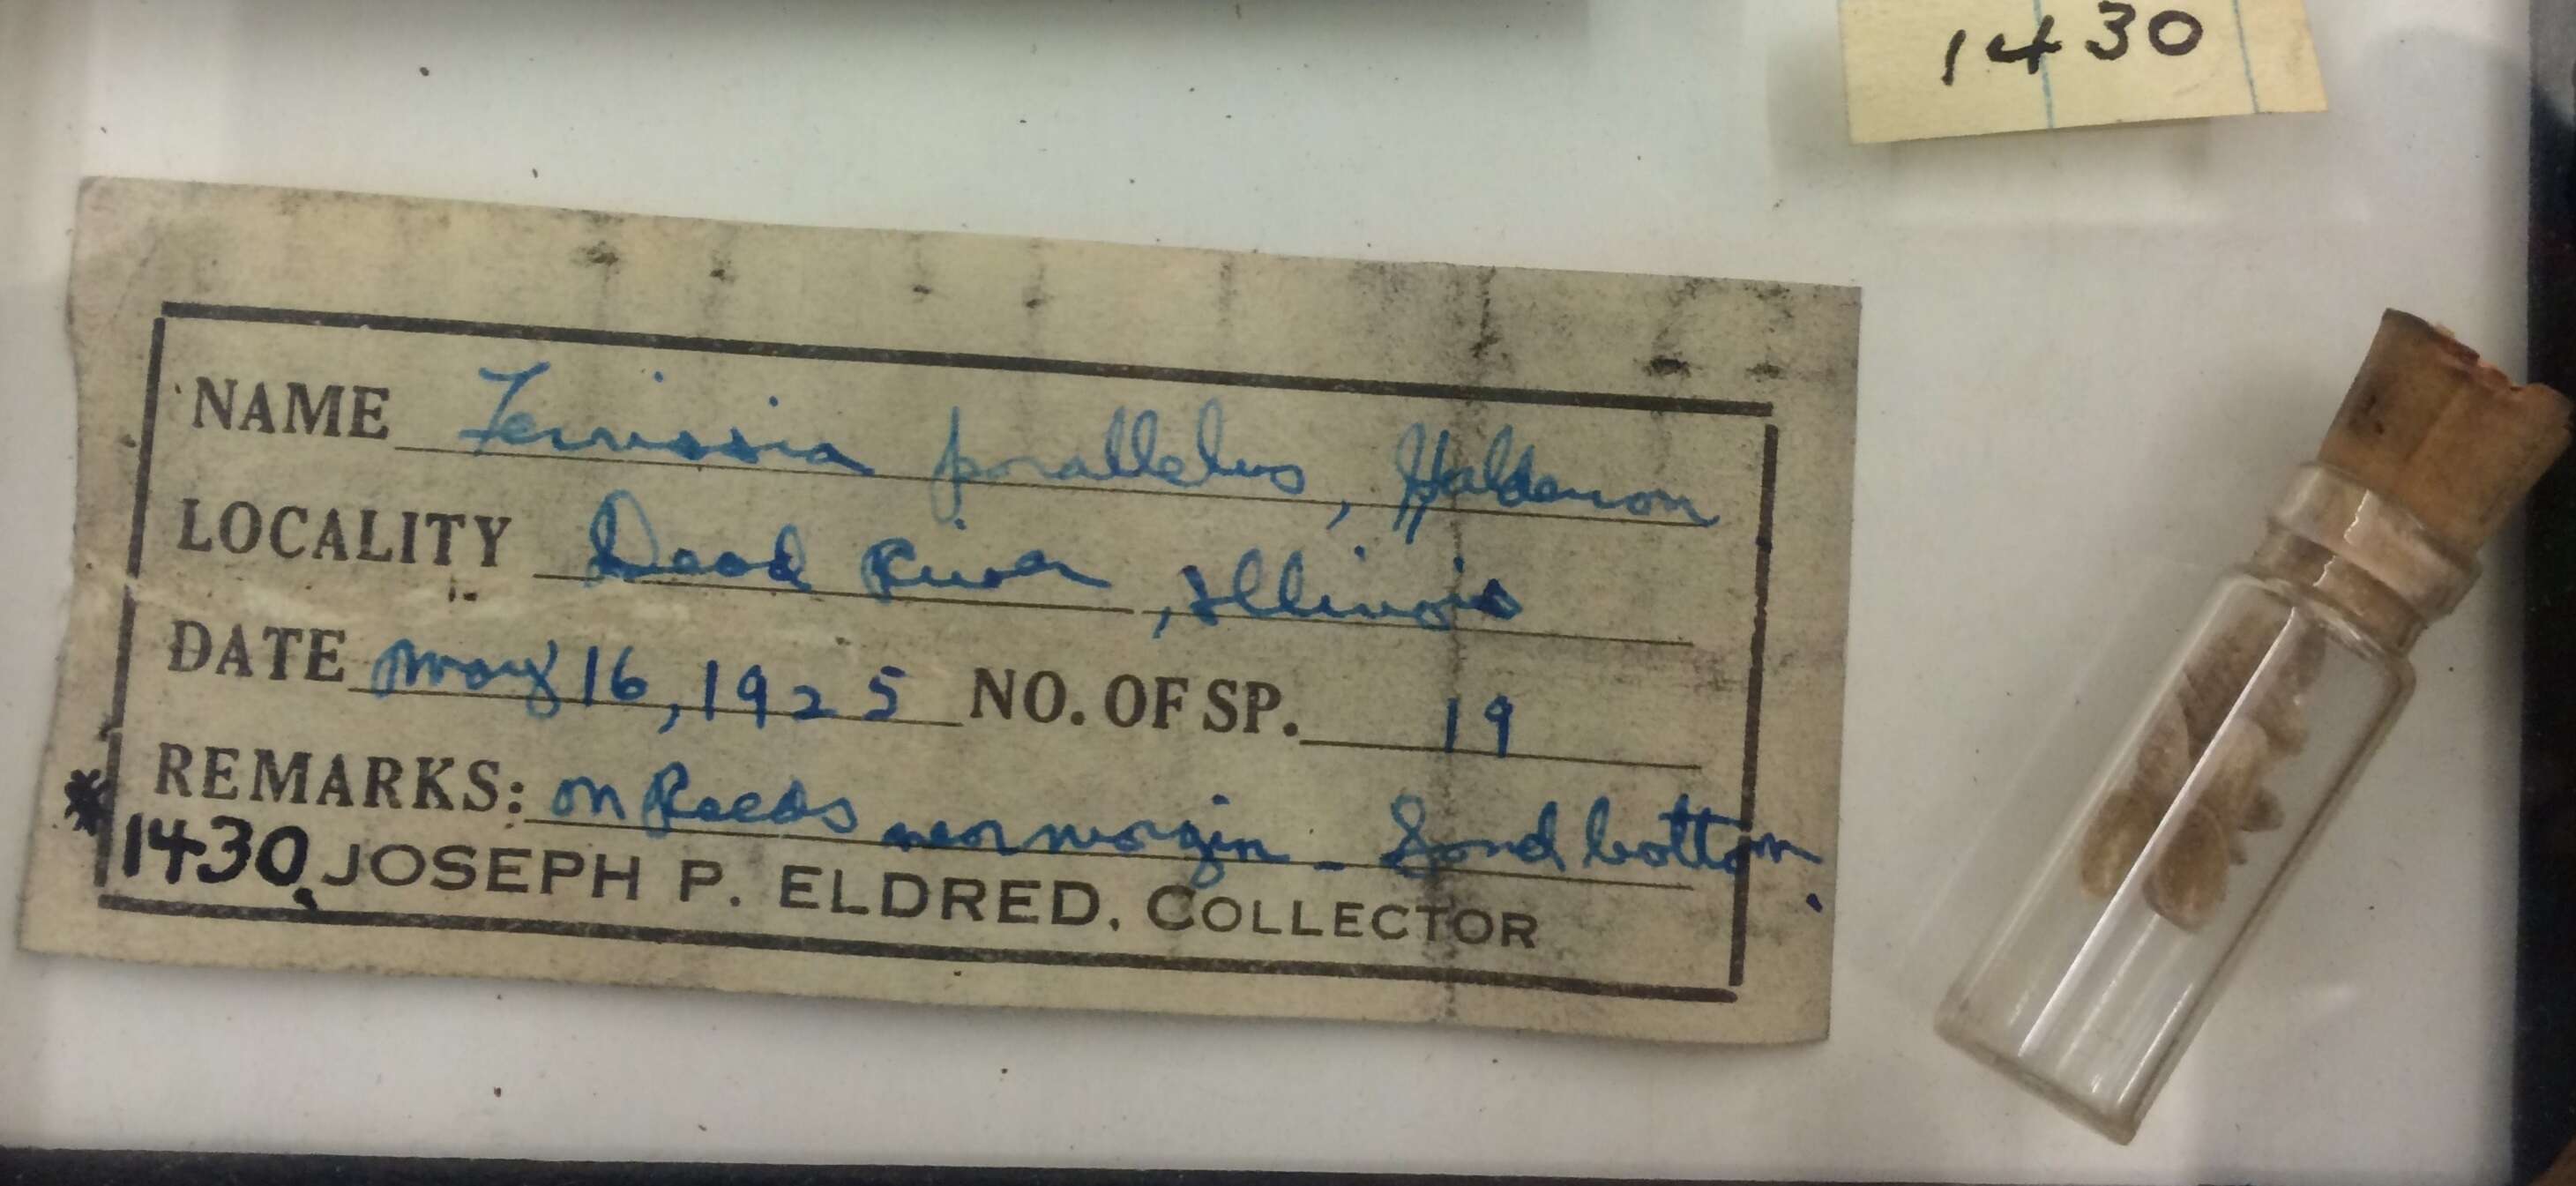 1430
NAME Ferrissia parallelus, Haldeman
LOCALITY Dead River, Illinois
DATE May 16, 1925 NO. OF SP. 19
REMARKS: on Reeds near margin - Sand bottom.
*1430. JOSEPH P. ELDRED, COLLECTOR